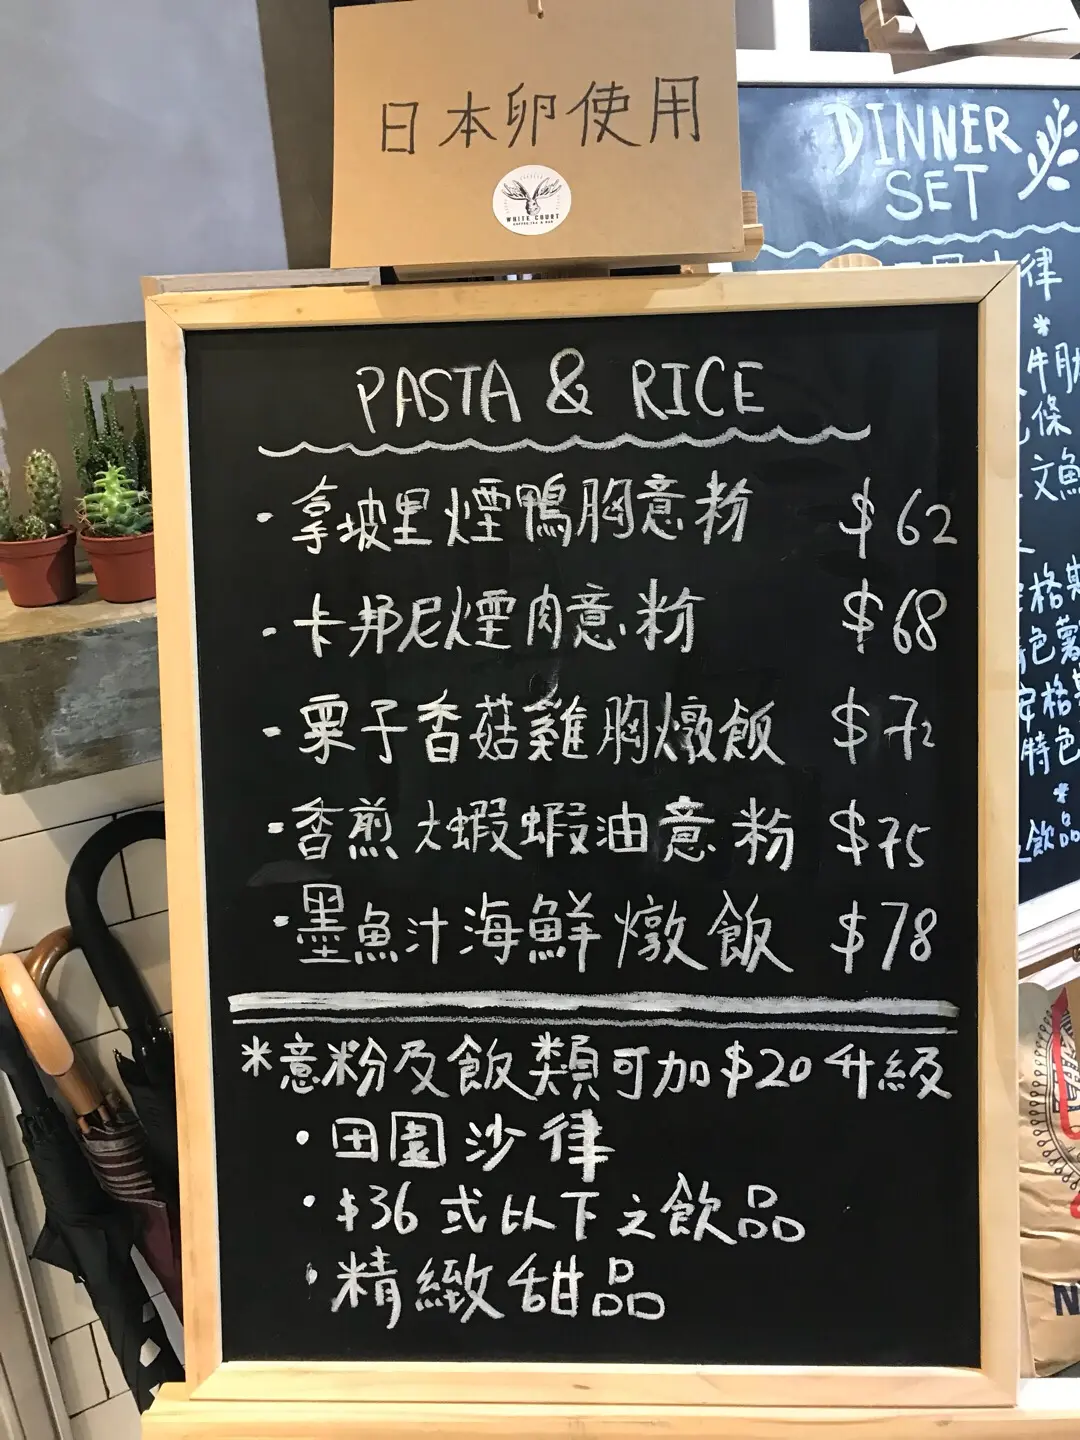 日本卵使用
WHITE COURT
COFFEE, TEA & BAR
PASTA & RICE
· 拿坡里煙鴨胸意粉 $62
· 卡邦尼煙肉意粉 $68
· 栗子香菇雞胸燉飯 $72
· 香煎大蝦蝦油意粉 $75
· 墨魚汁海鮮燉飯 $78
*意粉及飯類可加$20升級
· 田園沙律
· $36或以下之飲品
· 精緻甜品
DINNER
SET
律
*
牛肋
條
文魚
格
色薯
安格
特色
*
飲品